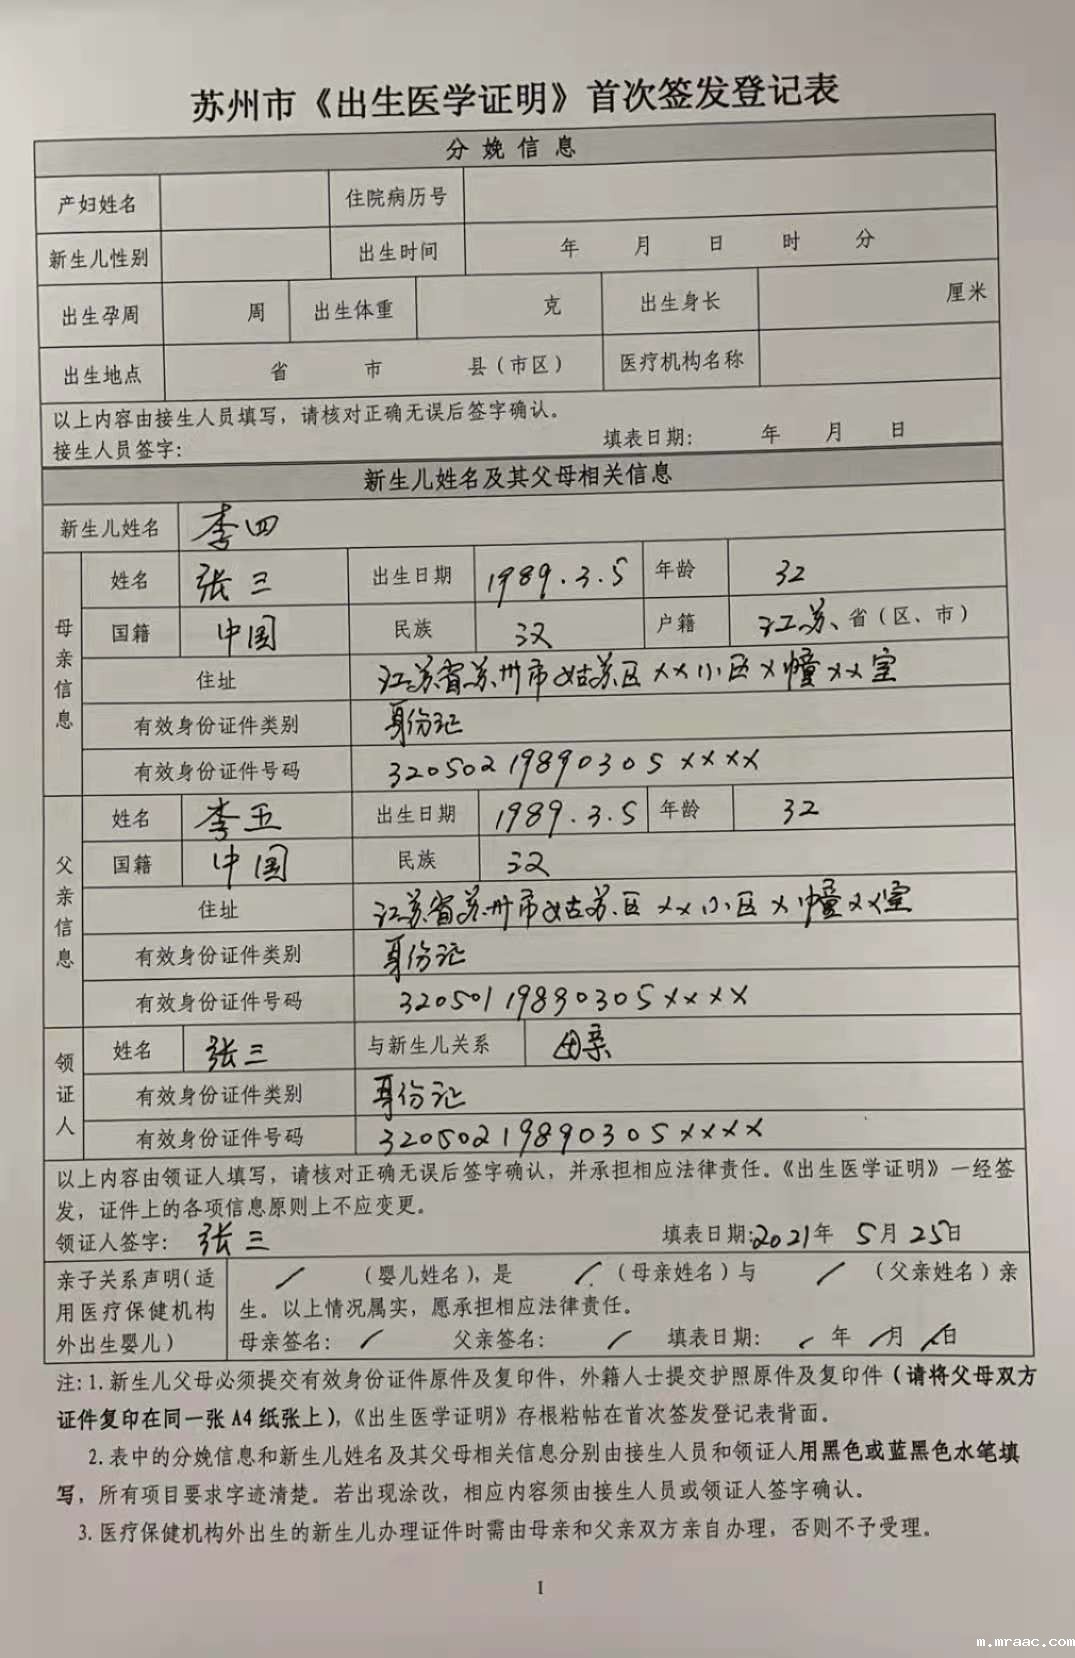 苏州市《出生医学证明》首次签发登记表
分 娩 信 息
产妇姓名 住院病历号
新生儿性别 出生时间 年 月 日 时 分
出生孕周 周 出生体重 克 出生身长 厘米
出生地点 省 市 县(市区) 医疗机构名称
以上内容由接生人员填写,请核对正确无误后签字确认。
接生人员签字: 填表日期: 年 月 日
新生儿姓名及其父母相关信息
新生儿姓名 李四
母亲信息
姓名 张三 出生日期 1989.3.5 年龄 32
国籍 中国 民族 汉 户籍 江苏 省(区、市)
住址 江苏省苏州市姑苏区××小区×幢××室
有效身份证件类别 身份证
有效身份证件号码 32050219890305××××
父亲信息
姓名 李五 出生日期 1989.3.5 年龄 32
国籍 中国 民族 汉
住址 江苏省苏州市姑苏区××小区×幢××室
有效身份证件类别 身份证
有效身份证件号码 32050119890305××××
领证人
姓名 张三 与新生儿关系 母亲
有效身份证件类别 身份证
有效身份证件号码 32050219890305××××
以上内容由领证人填写,请核对正确无误后签字确认,并承担相应法律责任。《出生医学证明》一经签
发,证件上的各项信息原则上不应变更。
领证人签字: 张三 填表日期:2021年 5月 25日
亲子关系声明(适 / (婴儿姓名),是 / (母亲姓名)与 / (父亲姓名)亲
用医疗保健机构 生。以上情况属实,愿承担相应法律责任。
外出生婴儿) 母亲签名: / 父亲签名: / 填表日期: / 年 / 月 / 日
注:1.新生儿父母必须提交有效身份证件原件及复印件,外籍人士提交护照原件及复印件(请将父母双方
证件复印在同一张A4纸张上),《出生医学证明》存根粘帖在首次签发登记表背面。
2.表中的分娩信息和新生儿姓名及其父母相关信息分别由接生人员和领证人用黑色或蓝黑色水笔填
写,所有项目要求字迹清楚。若出现涂改,相应内容须由接生人员或领证人签字确认。
3.医疗保健机构外出生的新生儿办理证件时需由母亲和父亲双方亲自办理,否则不予受理。
1
m.mraac.com